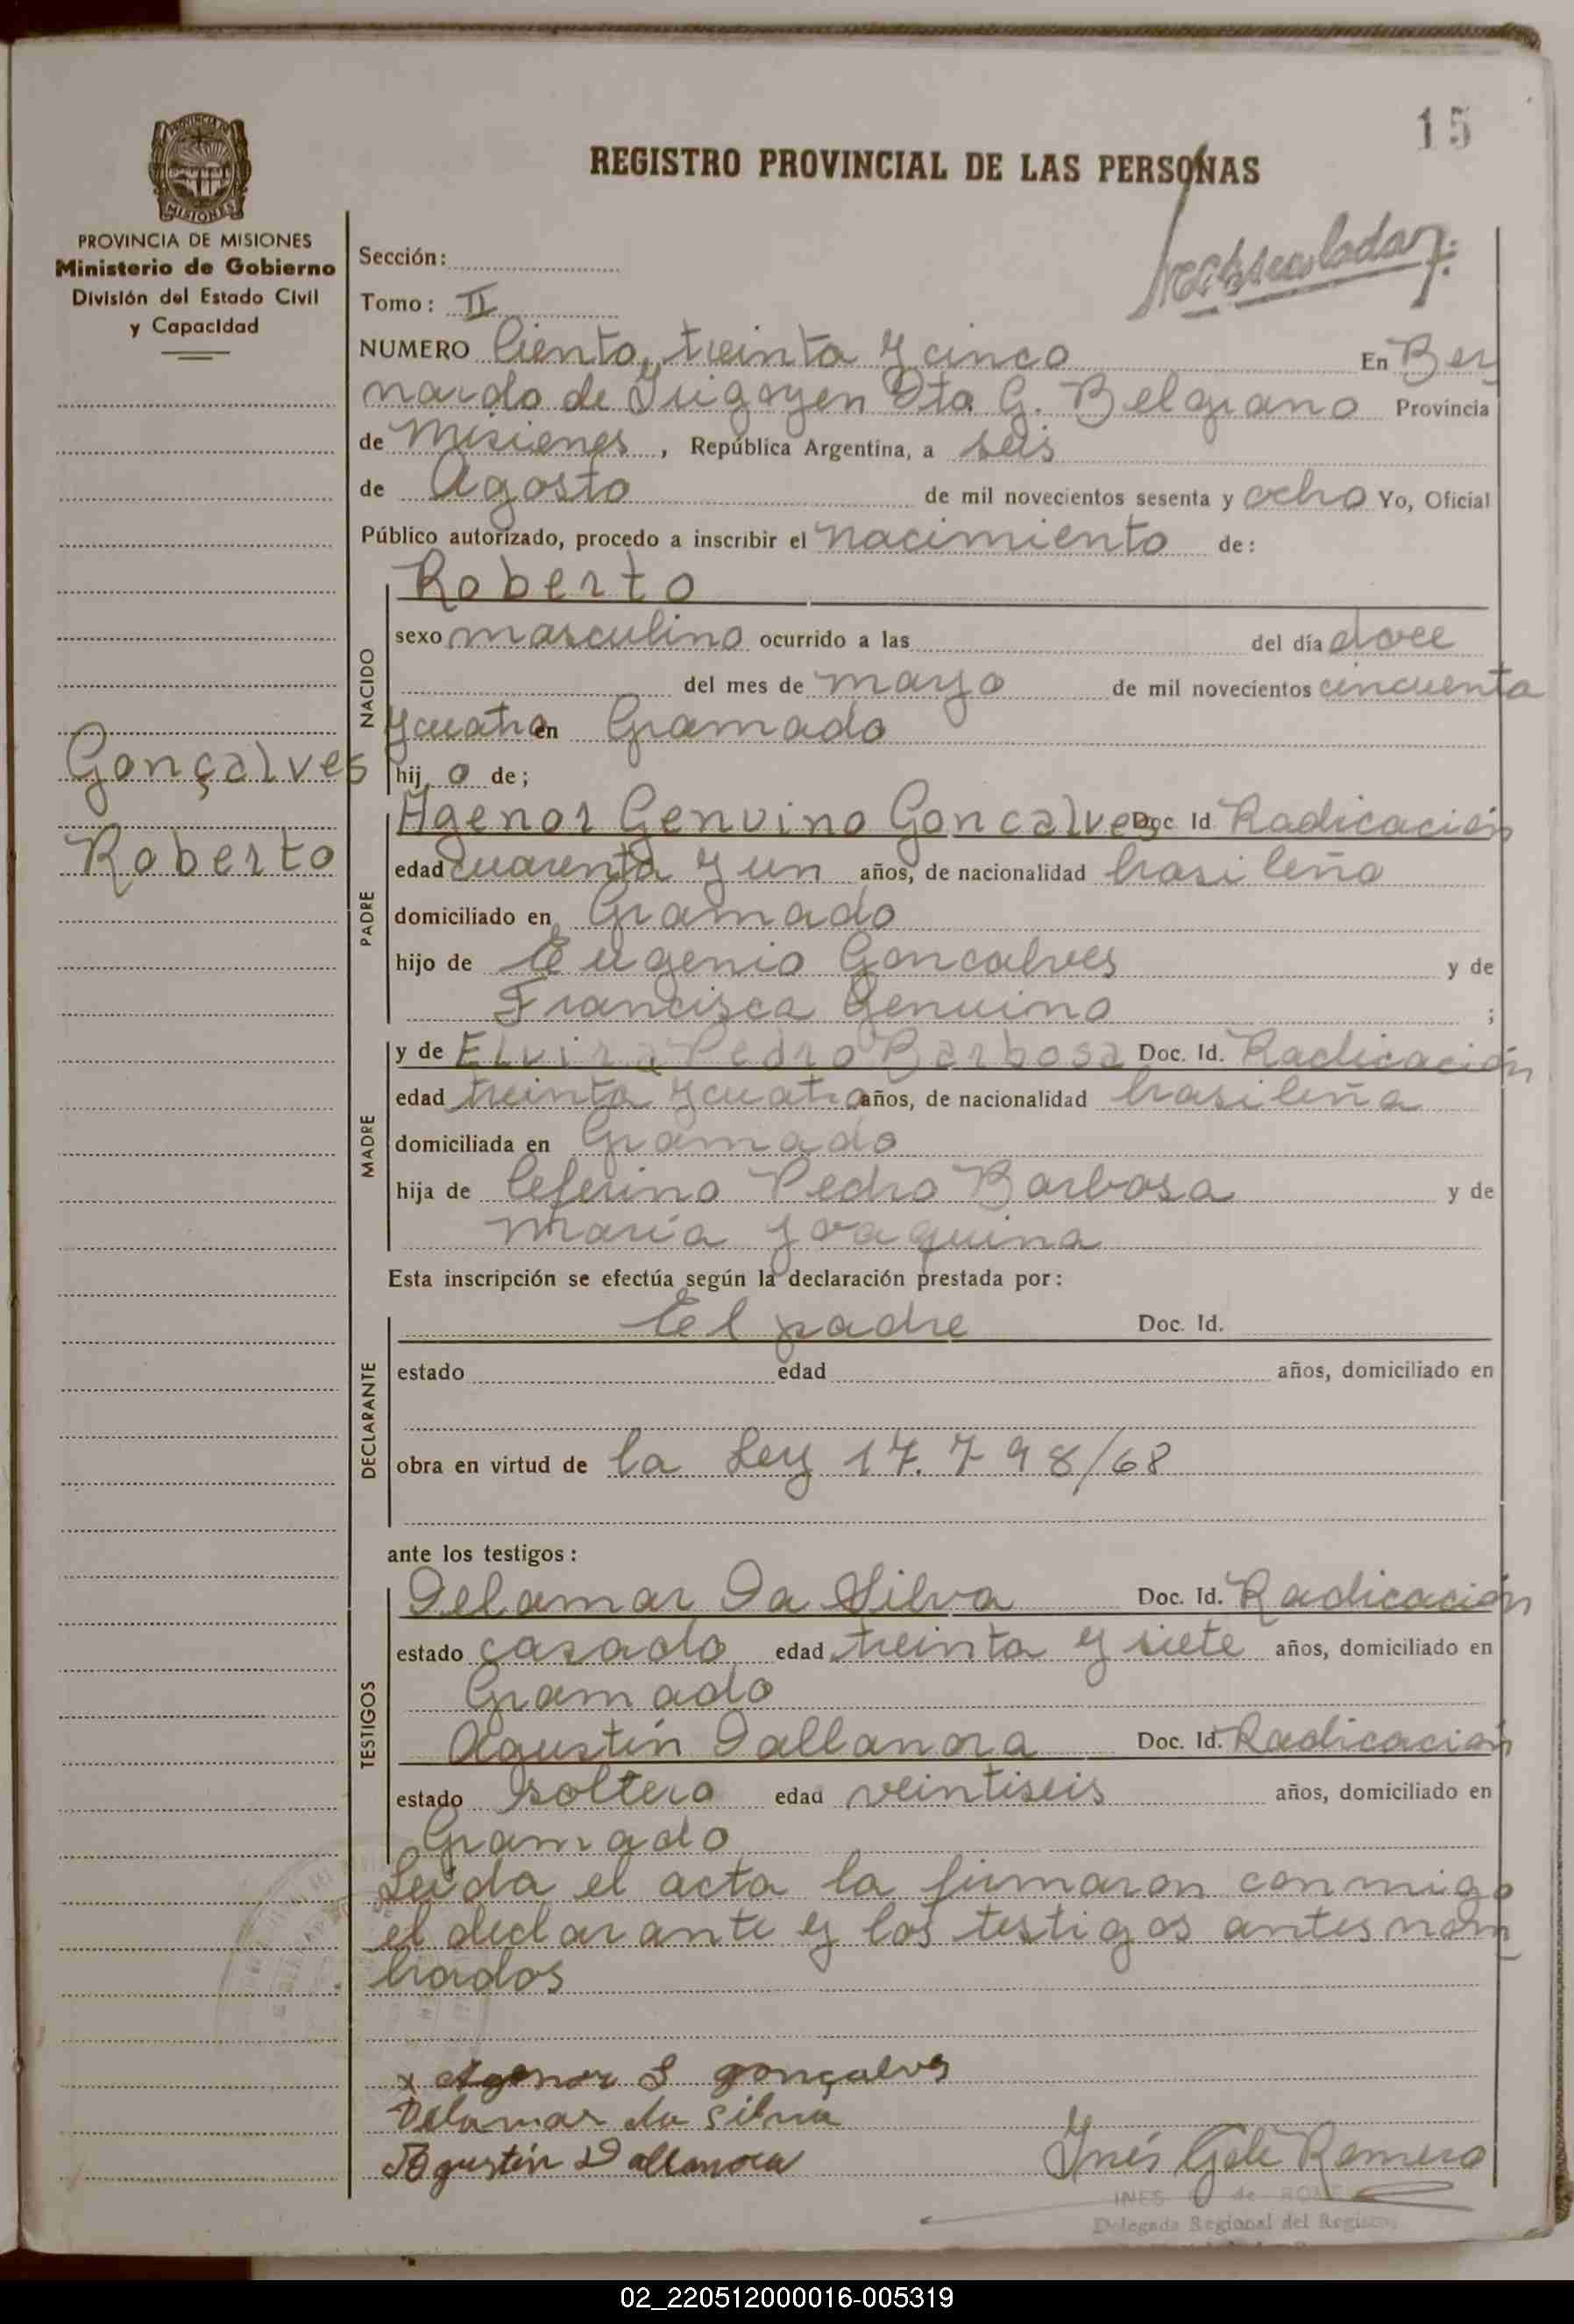 15
REGISTRO PROVINCIAL DE LAS PERSONAS
PROVINCIA DE MISIONES
Ministerio de Gobierno
División del Estado Civil
y Capacidad
Sección:
Tomo: II
NUMERO Ciento, treinta y cinco En Ber
nardo de Irigoyen Dto G. Belgrano Provincia
de Misiones, República Argentina, a seis
de Agosto de mil novecientos sesenta y ocho Yo, Oficial
Público autorizado, procedo a inscribir el nacimiento de:
Roberto
NACIDO
sexo masculino ocurrido a las del día doce
del mes de mayo de mil novecientos cincuenta
y cuatro en Gramado
Gonçalves
Roberto
hijo de;
PADRE
Agenor Genuino Goncalves Doc Id Radicación
edad cuarenta y un años, de nacionalidad brasileña
domiciliado en Gramado
hijo de Eugenio Goncalves y de
Francisca Genuino ;
MADRE
y de Elvira Pedro Barbosa Doc. Id. Radicación
edad treinta y cuatro años, de nacionalidad brasileña
domiciliada en Gramado
hija de Ceferino Pedro Barbosa y de
María Joaquina
Esta inscripción se efectúa según la declaración prestada por:
DECLARANTE
El padre Doc. Id.
estado edad años, domiciliado en
obra en virtud de la Ley 17.798/68
ante los testigos:
TESTIGOS
Delamar Da Silva Doc. Id. Radicación
estado casado edad treinta y siete años, domiciliado en
Gramado
Agustín Dallanora Doc. Id. Radicación
estado soltero edad veintiseis años, domiciliado en
Gramado
Leída el acta la firmaron conmigo
el declarante y los testigos antes nom
brados
x Agenor G gonçalves
Delamar da Silva
Agustín Dallanora
Inés Romero
INES G de ROMERO
Delegada Regional del Registro
02_220512000016-005319